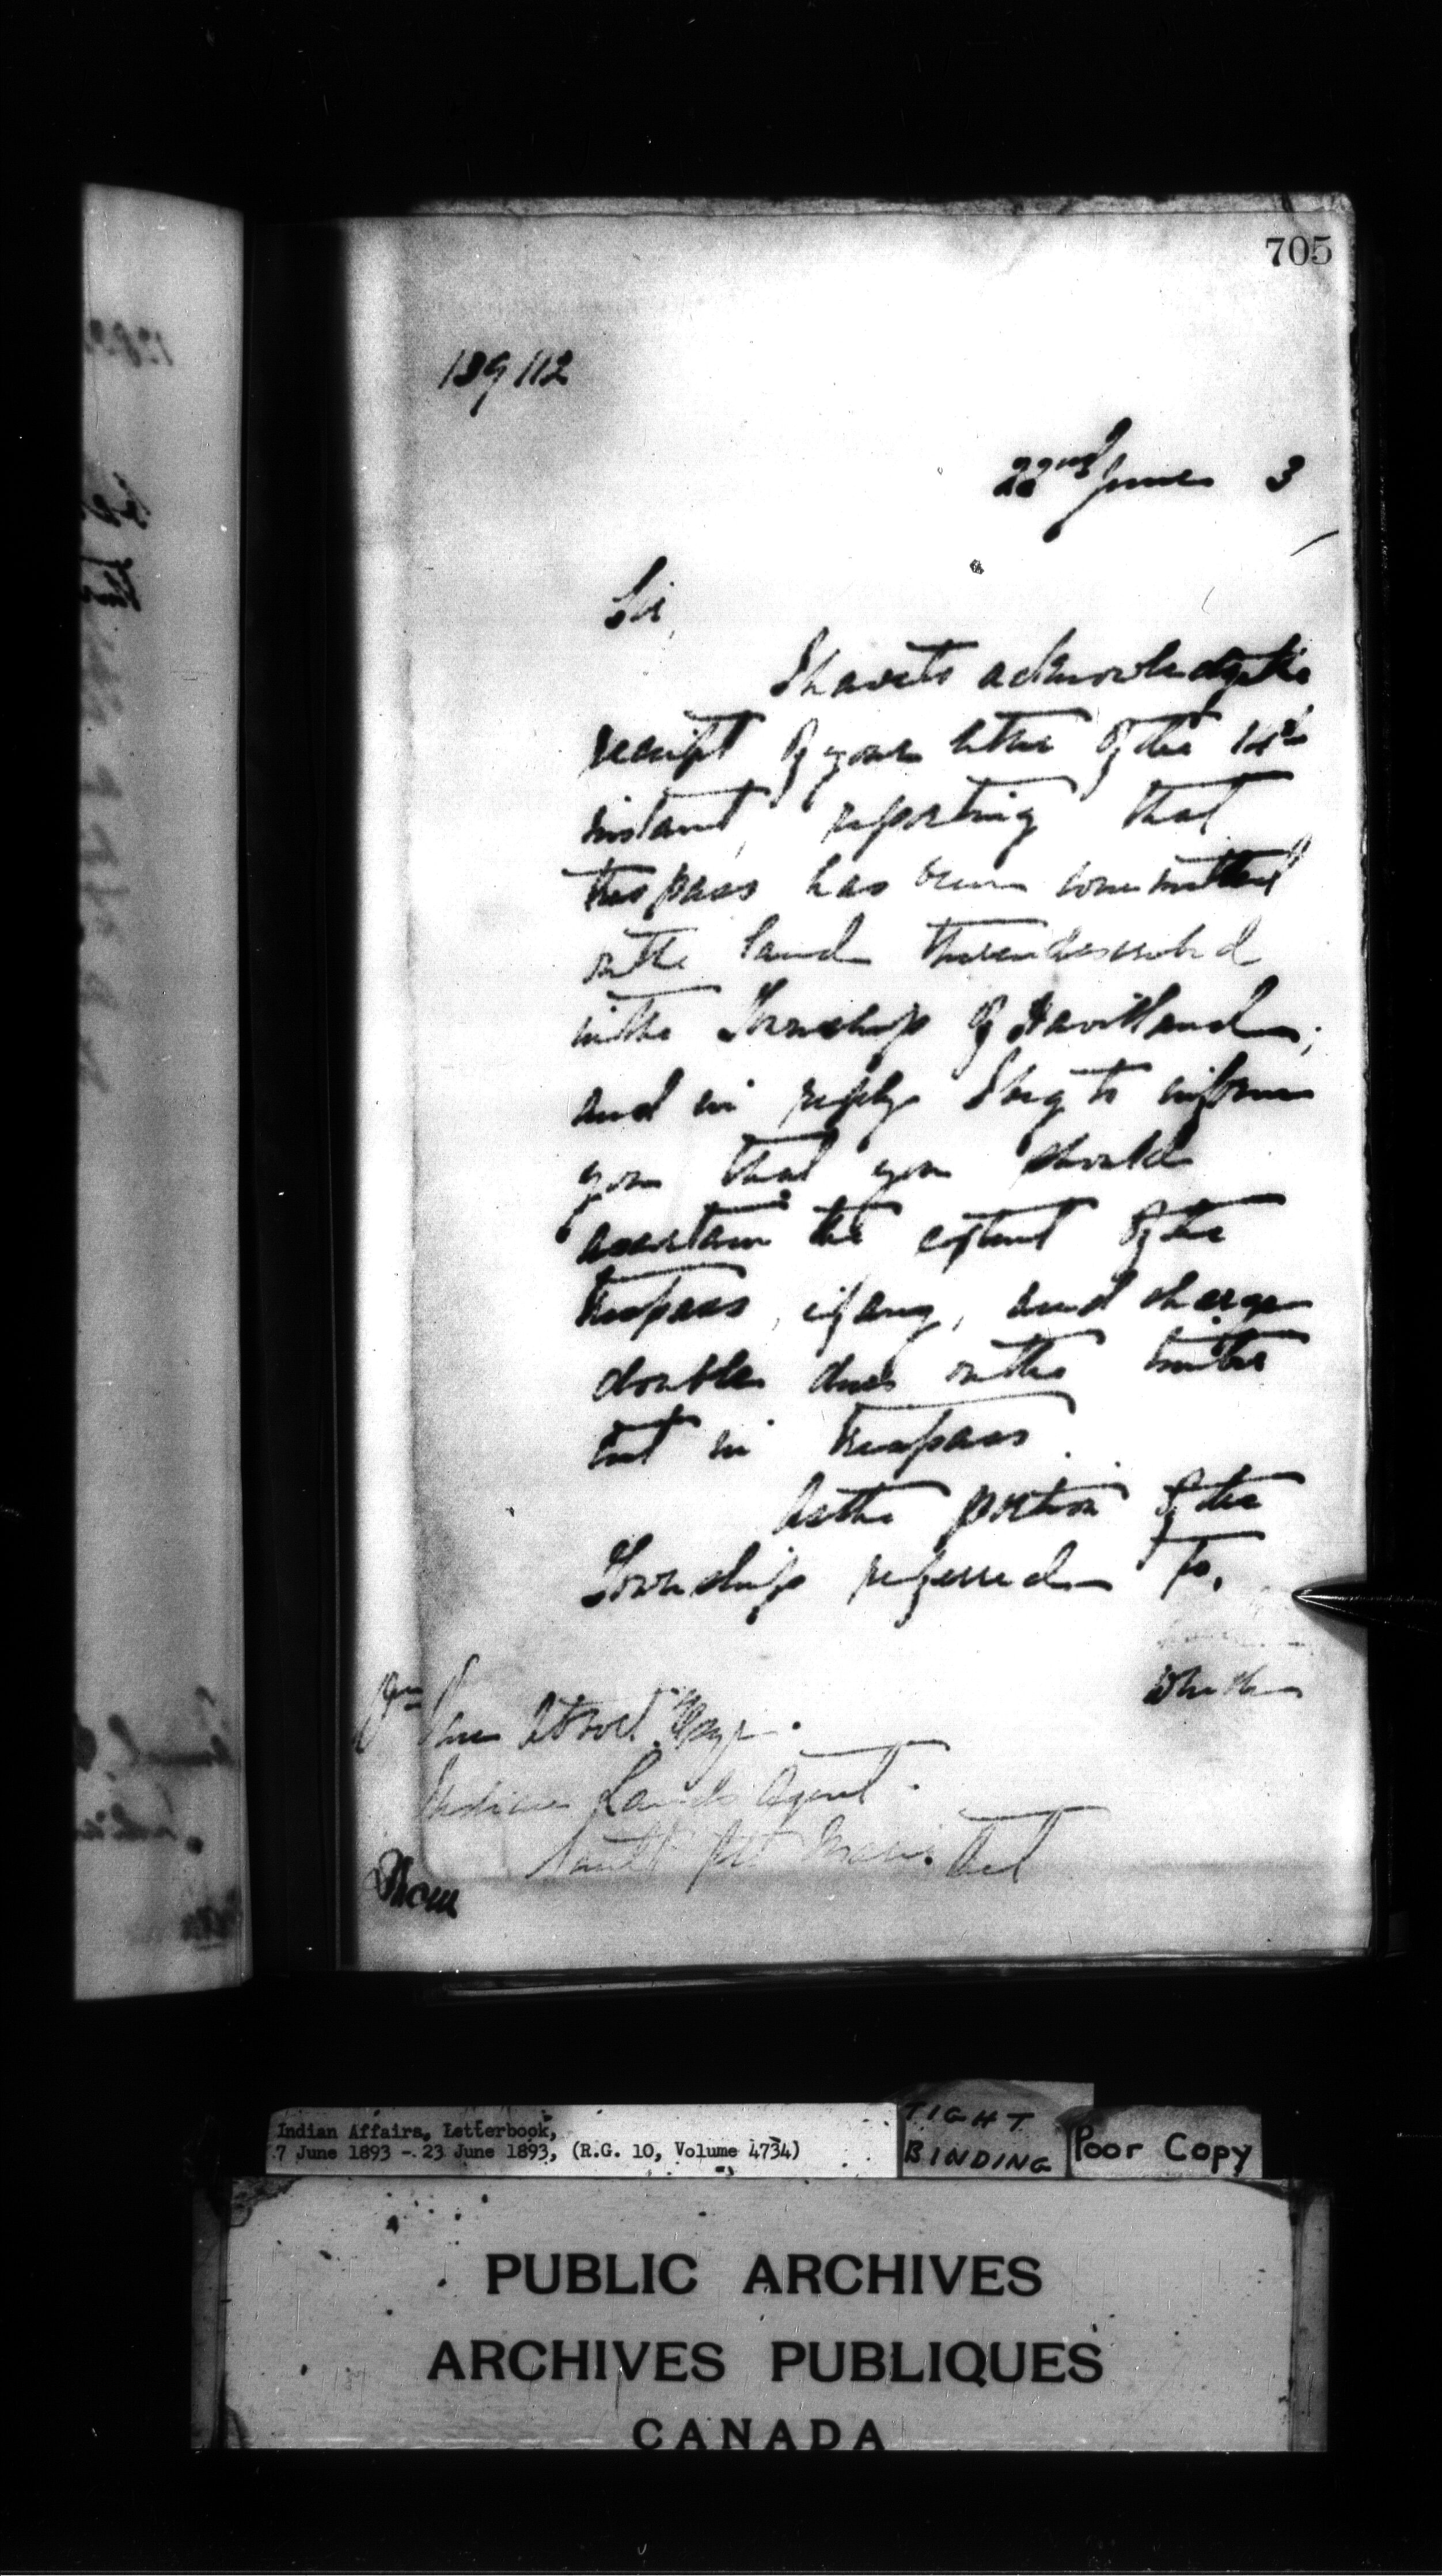 705
139112
22nd June 3
Sir,
I have to acknowledge the
receipt of your letter of the 14th
instant, reporting that
trespass has been committed
on the land therein described
in the Township of Havilland;
and in reply I beg to inform
you that you should
ascertain the extent of the
trespass, if any, and charge
double dues on the timber
cut in trespass.
As the portion of the
Township referred to,
whether
Wm Van Abbott Esq.
Indian Lands Agent.
Sault Ste Marie. Ont
Indian Affairs, Letterbook,
7 June 1893 - 23 June 1893, (R.G. 10, Volume 4734)
TIGHT
BINDING
Poor Copy
PUBLIC ARCHIVES
ARCHIVES PUBLIQUES
CANADA